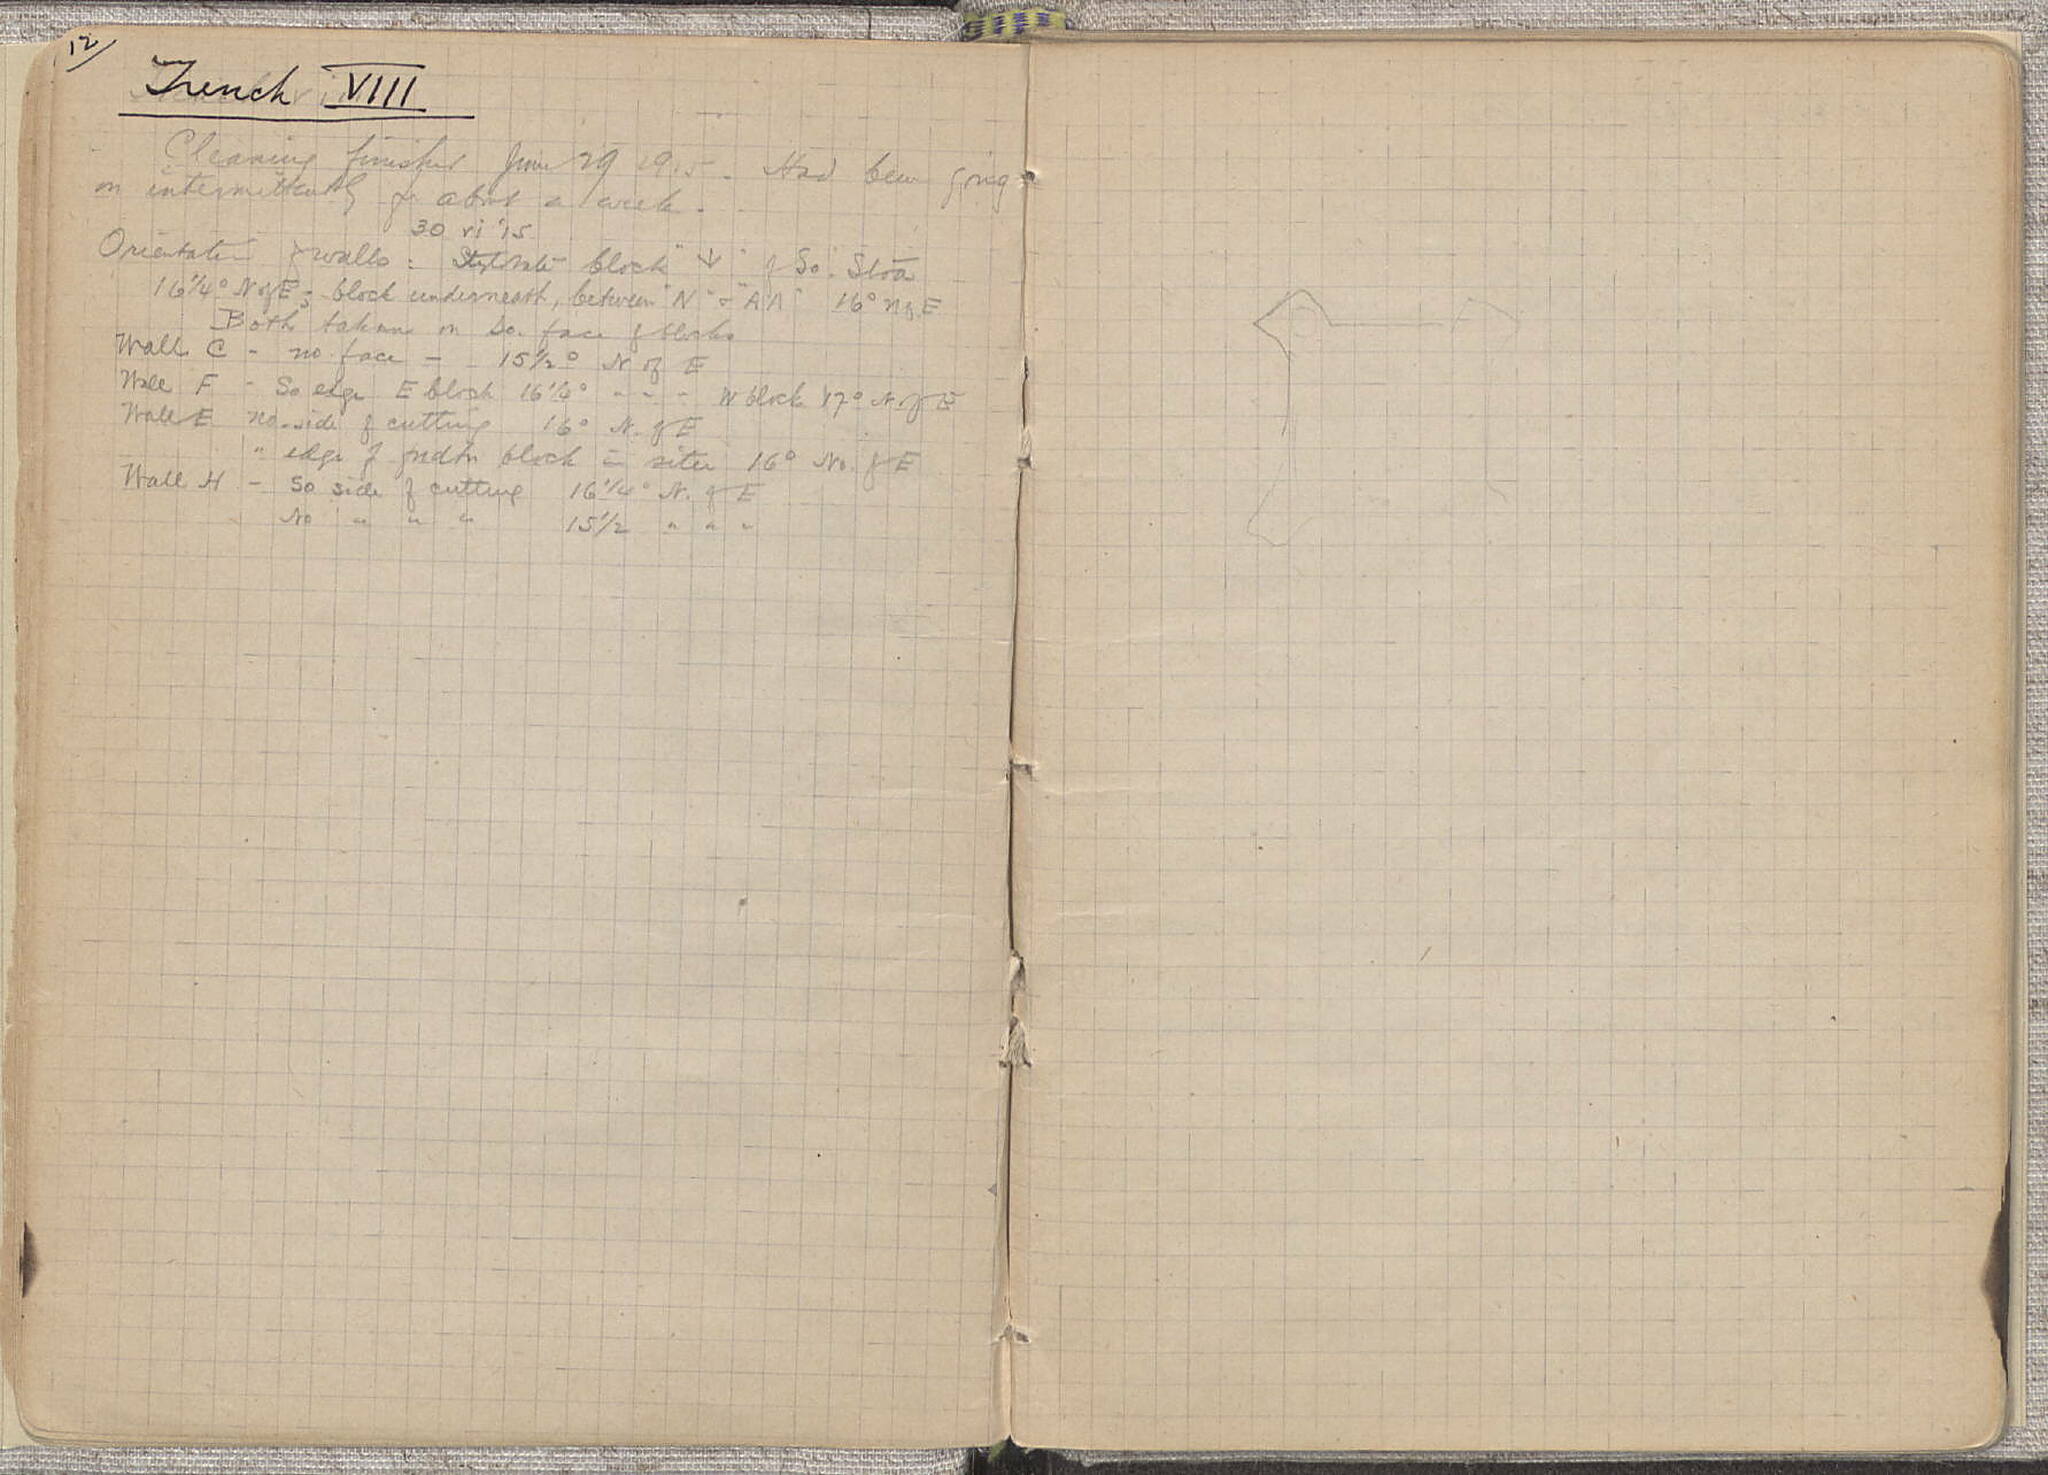 12/
Trench VIII
Cleaning finished June 29 1915. Had been going
on intermittently for about a week.
30 vi '15
Orientation of walls: Stylobate block "↓" of So. Stoa
16 1/4° N of E; block underneath, between "N" & "AΛ" 16° N of E
Both taken on So. face of blocks
Wall C - no face - 15 1/2° N of E
Wall F - So edge E block 16 1/4° - - - W block 17° N. of E
Wall E no. side of cutting 16° N. of E
" edge of fndtn block in situ 16° No. of E
Wall H - So side of cutting 16 1/4° N. of E
No " " " 15 1/2 " " "